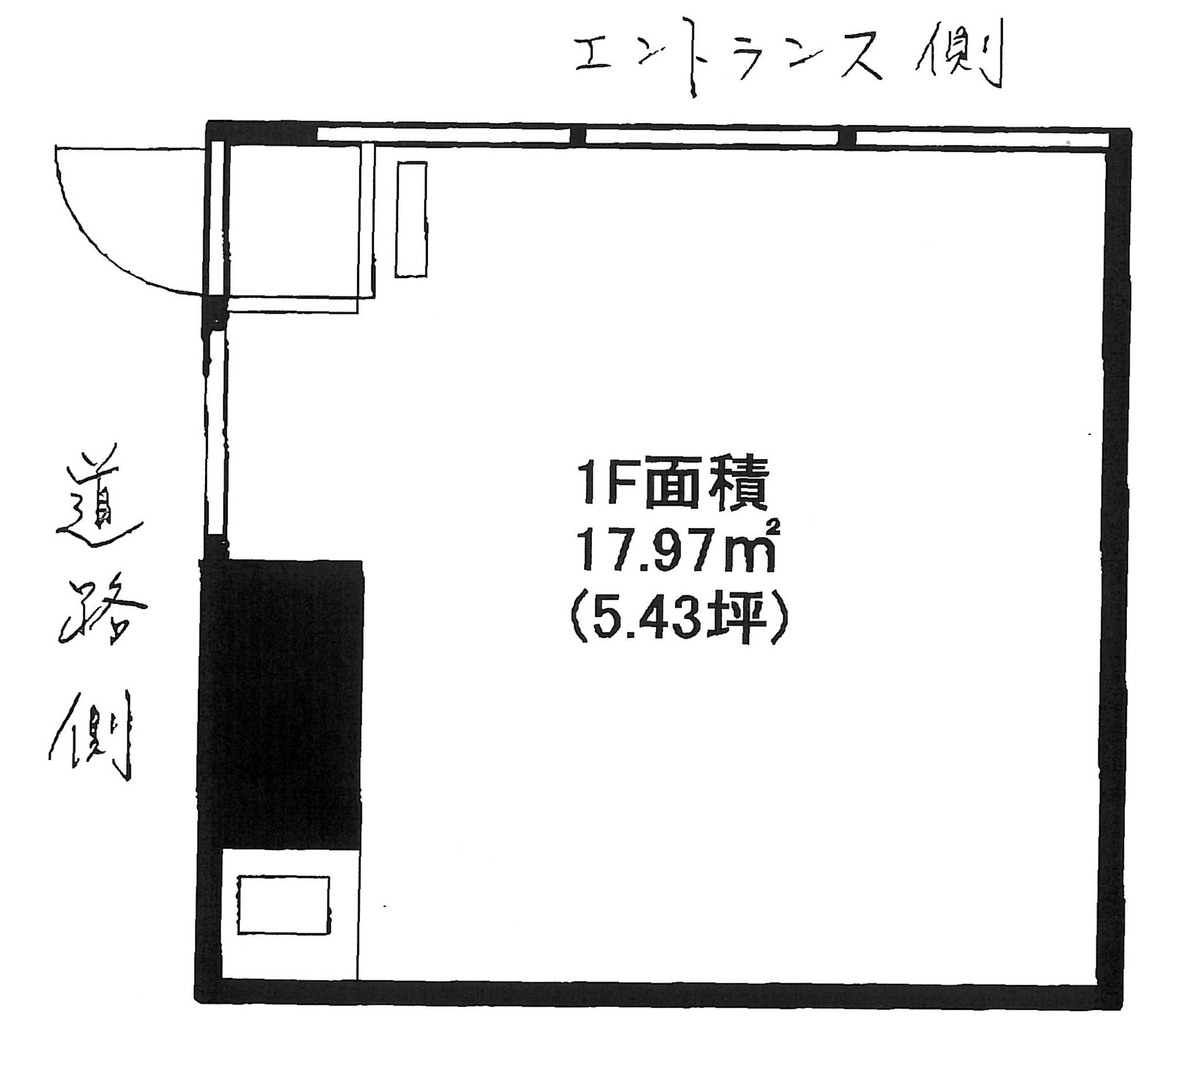 エントランス側
道路側
1F面積
17.97㎡
(5.43坪)